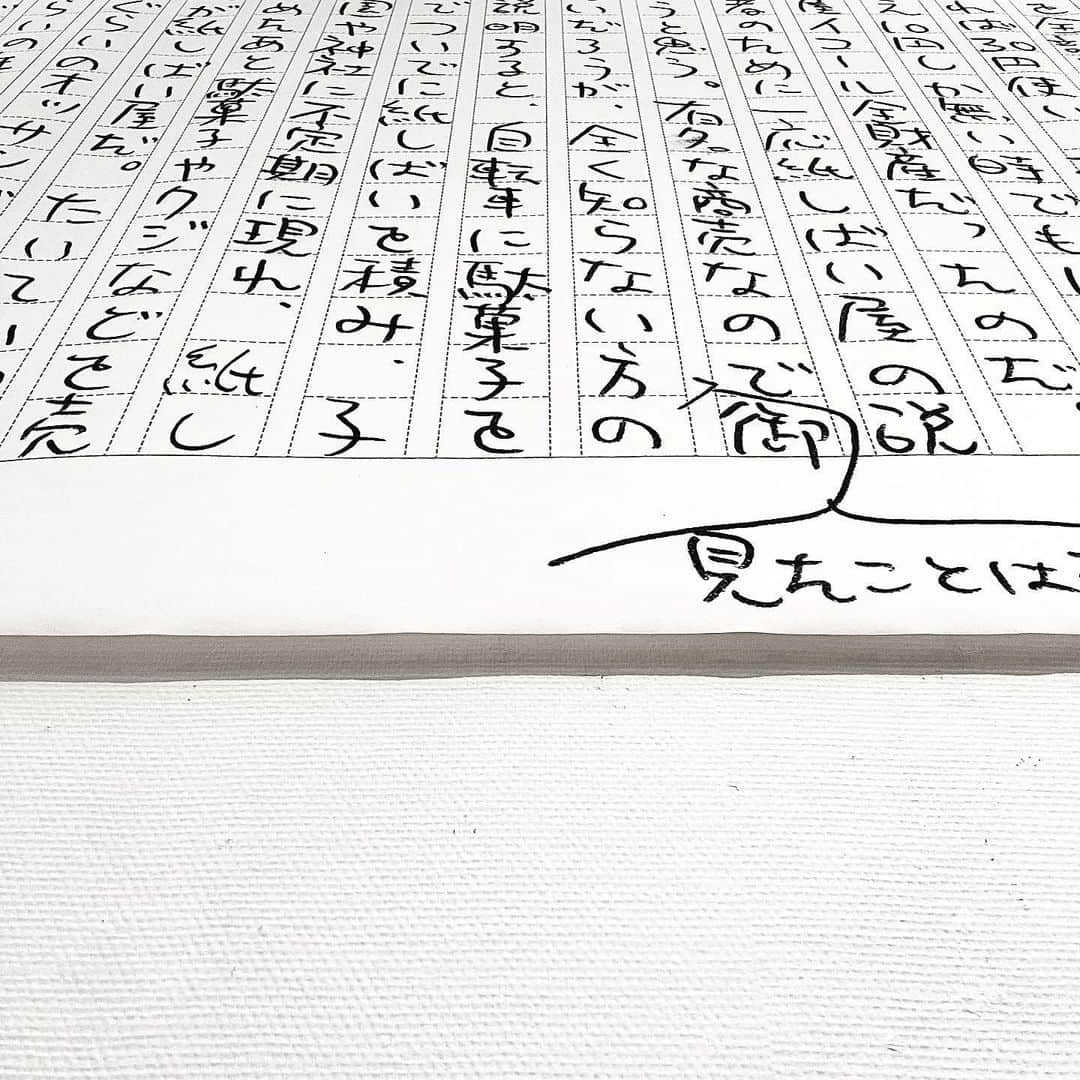 れば30円使い
え10円しか無い時でも
屋イコール全財産だったのだ。
者のために一応紙しばい屋の説
うと思う。有名な商売なので御
いだろうが、全く知らない方の
説明すると、自転車に駄菓子を
でついでに紙しばいを積み、子
園や神社に不定期に現れ、紙し
めたあと駄菓子やクジなどを売
が紙しばい屋だ。たいてい
ぐらいのオッサン
見たことは